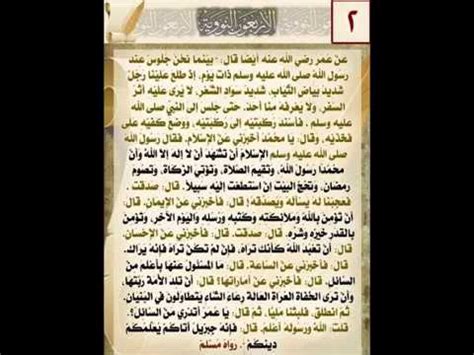 ٢
الأربعون النووية الأربعون النووية
عن عمر رضي الله عنه أيضا قال: "بينما نحن جلوس عند
رسول الله صلى الله عليه وسلم ذات يوم، إذ طلع علينا رجل
شديد بياض الثياب، شديد سواد الشعر، لا يرى عليه أثر
السفر، ولا يعرفه منا أحد. حتى جلس إلى النبي صلى الله
عليه وسلم، فأسند ركبتيه إلى ركبتيه، ووضع كفيه على
فخذيه، وقال: يا محمد أخبرني عن الإسلام. فقال رسول الله
صلى الله عليه وسلم الإسلام أن تشهد أن لا إله إلا الله وأن
محمدا رسول الله، وتقيم الصلاة، وتؤتي الزكاة، وتصوم
رمضان، وتحج البيت إن استطعت إليه سبيلا. قال: صدقت.
فعجبنا له يسأله ويصدقه! قال: فأخبرني عن الإيمان. قال:
أن تؤمن بالله وملائكته وكتبه ورسله واليوم الآخر، وتؤمن
بالقدر خيره وشره. قال: صدقت. قال: فأخبرني عن الإحسان.
قال: أن تعبد الله كأنك تراه، فإن لم تكن تراه فإنه يراك.
قال: فأخبرني عن الساعة. قال: ما المسئول عنها بأعلم من
السائل. قال: فأخبرني عن أماراتها؟ قال: أن تلد الأمة ربتها،
وأن ترى الحفاة العراة العالة رعاء الشاء يتطاولون في البنيان.
ثم انطلق، فلبثنا مليا، ثم قال: يا عمر أتدري من السائل؟.
قلت: الله ورسوله أعلم. قال: فإنه جبريل أتاكم يعلمكم
دينكم". رواه مسلم